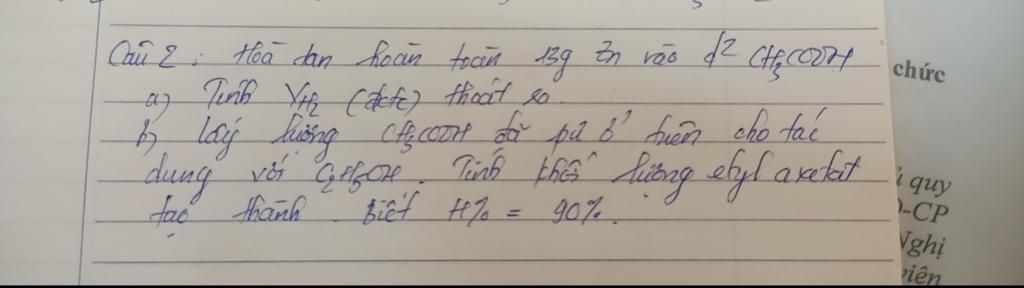 Câu 2 : Hoà tan hoàn toàn 13g Zn vào d² CH₃COOH
a) Tính VH₂ (đktc) thoát ra.
b) Lấy lượng CH₃COOH đã pứ ở trên cho tác
dụng với C₂H₅OH. Tính khối lượng etyl axetat
tạo thành. Biết H% = 90%.
chức
quy
-CP
Nghị
viên